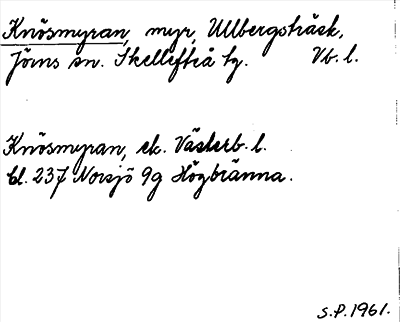 Knösmyran, myr, Ullbergsträsk,
Jörns sn. Skellefteå tg. Vb. l.
Knösmyran, ek. Västerb. l.
bl. 237 Norsjö 9g Högbränna.
S.P. 1961.